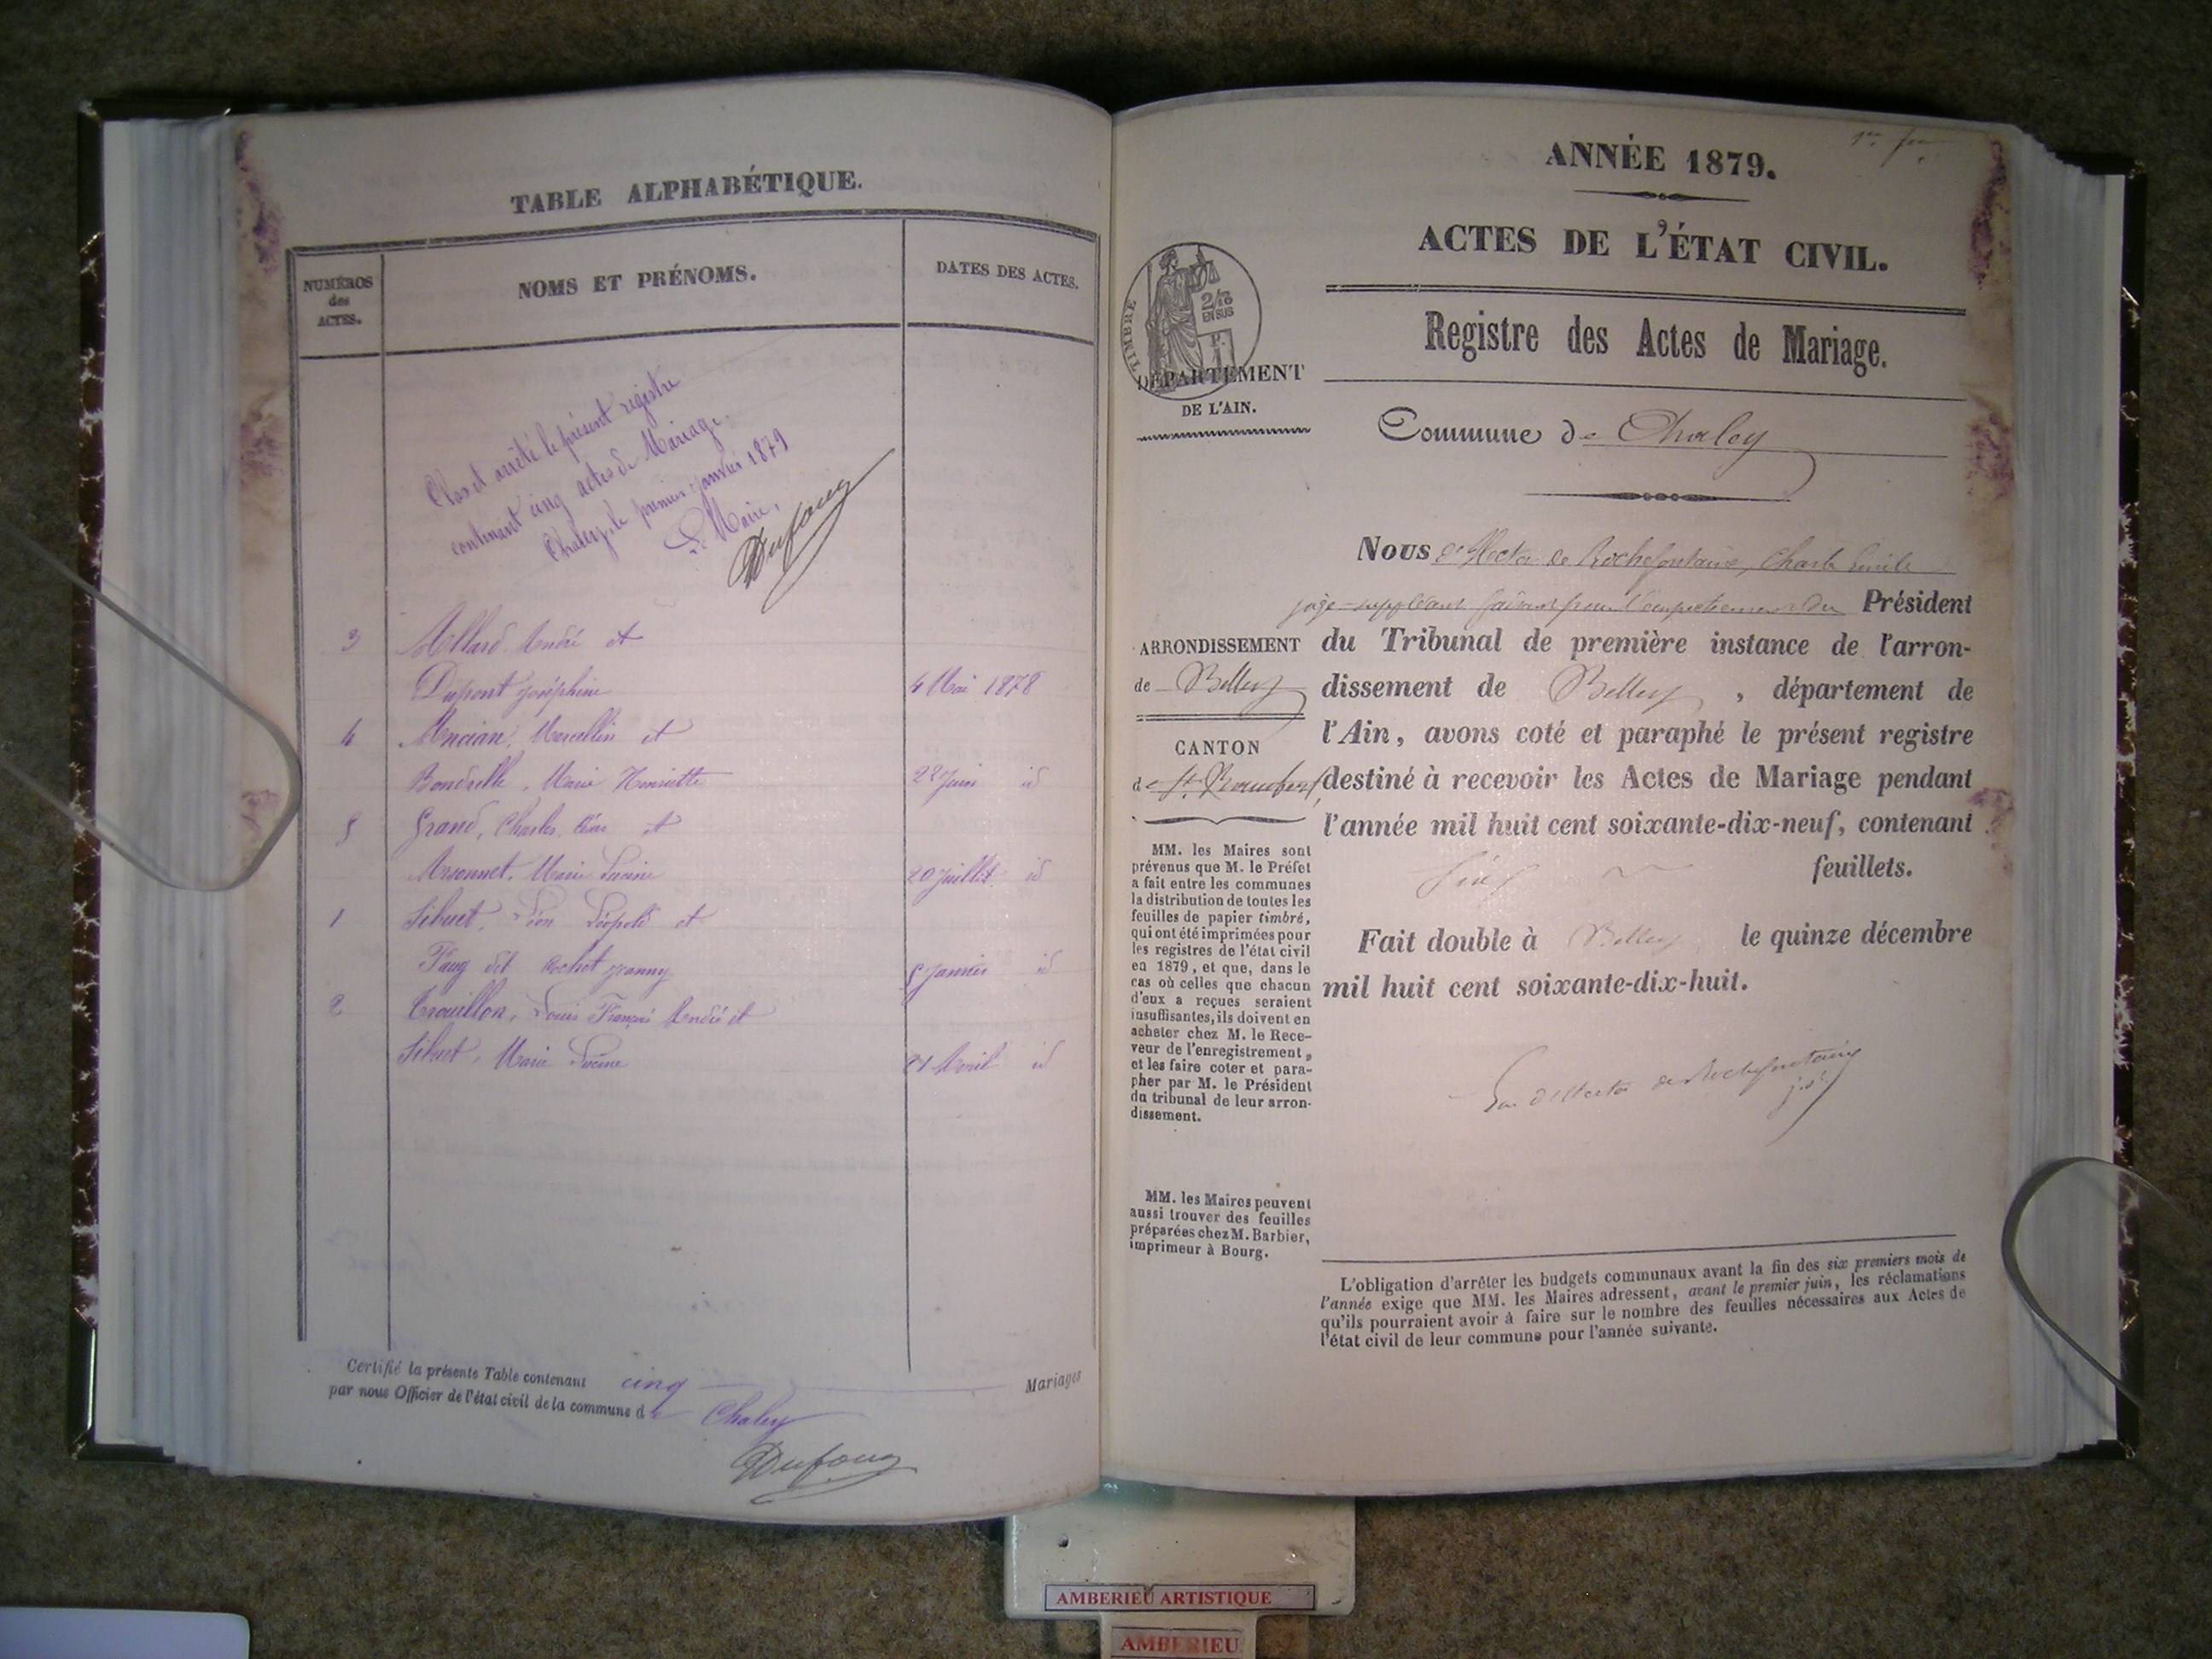 TABLE ALPHABÉTIQUE.
NUMÉROS
des
ACTES.
NOMS ET PRÉNOMS.
DATES DES ACTES.
Clos et arrêté le présent registre
contenant cinq actes de Mariage.
Chaley, le premier janvier 1879
Le Maire,
Dufour
3 Allard. André et
Dupont Joséphine 4 Mai 1878
4 Ancian, Marcellin et
Marie Henriette 22 Juin id
5 Grand, Charles, et
Marie 20 Juillet id
1 Sibuet, Léon Léopold et
dit Cochet Jeanny 5 Janvier id
2 Trouillon, Louis François André et
Sibuet, Marie 21 Avril id
Certifié la présente Table contenant cinq Mariages
par nous Officier de l'état civil de la commune de Chaley
Dufour
ANNÉE 1879.
ACTES DE L'ÉTAT CIVIL.
Registre des Actes de Mariage.
TIMBRE
2/10
EN SUS
DÉPARTEMENT
DE L'AIN.
Commune de Chaley
Nous de Rochefontaine, Charles Emile
juge-suppléant pour l'empêchement du Président
ARRONDISSEMENT
de Belley
CANTON
de St. Rambert
du Tribunal de première instance de l'arron-
dissement de Belley, département de
l'Ain, avons coté et paraphé le présent registre
destiné à recevoir les Actes de Mariage pendant
l'année mil huit cent soixante-dix-neuf, contenant
feuillets.
Fait double à Belley le quinze décembre
mil huit cent soixante-dix-huit.
MM. les Maires sont
prévenus que M. le Préfet
a fait entre les communes
la distribution de toutes les
feuilles de papier timbré,
qui ont été imprimées pour
les registres de l'état civil
en 1879, et que, dans le
cas où celles que chacun
d'eux a reçues seraient
insuffisantes, ils doivent en
acheter chez M. le Rece-
veur de l'enregistrement,
et les faire coter et para-
pher par M. le Président
du tribunal de leur arron-
dissement.
MM. les Maires peuvent
aussi trouver des feuilles
préparées chez M. Barbier,
imprimeur à Bourg.
L'obligation d'arrêter les budgets communaux avant la fin des six premiers mois de
l'année exige que MM. les Maires adressent, avant le premier juin, les réclamations
qu'ils pourraient avoir à faire sur le nombre des feuilles nécessaires aux Actes de
l'état civil de leur commune pour l'année suivante.
AMBERIEU ARTISTIQUE
AMBERIEU